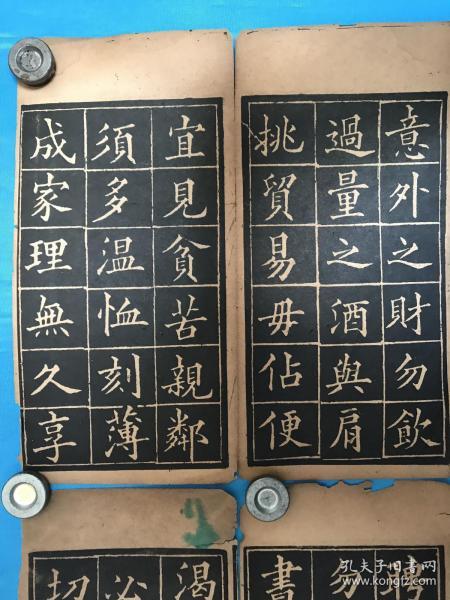 意外之財勿飲
過量之酒與肩
挑貿易毋佔便
宜見貧苦親鄰
須多温恤刻薄
成家理無久享
勿
書
渴
必
切
孔夫子旧书网
www.kongfz.com